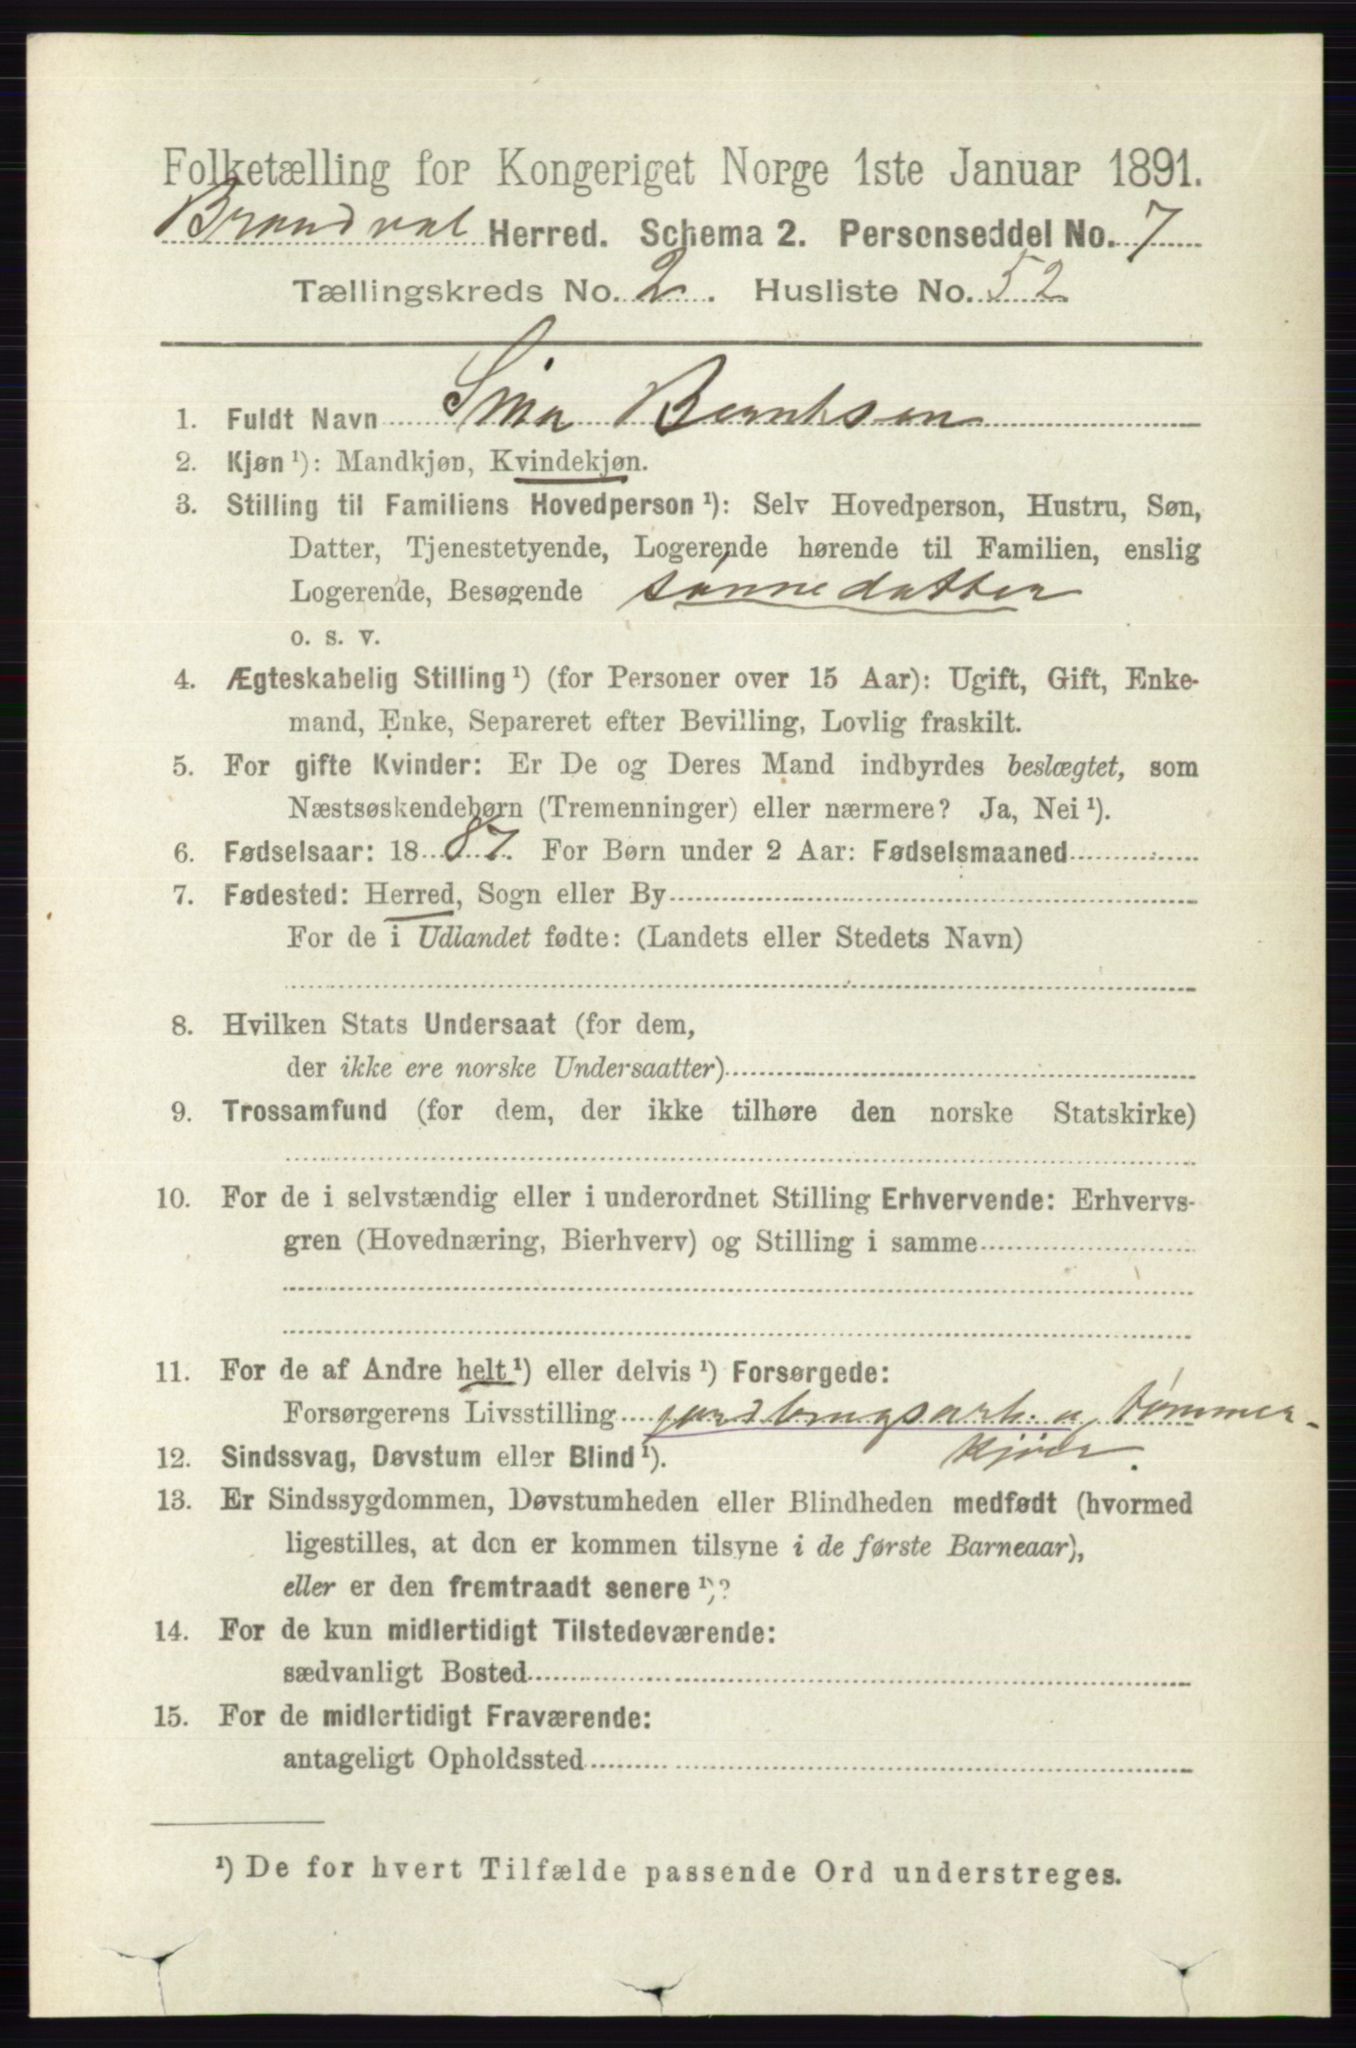 Folketælling for Kongeriget Norge 1ste Januar 1891.
Brandval Herred. Schema 2. Personseddel No. 7
Tællingskreds No. 2. Husliste No. 52
1. Fuldt Navn Sina Berntsen
2. Kjøn ¹): Mandkjøn, Kvindekjøn.
3. Stilling til Familiens Hovedperson ¹): Selv Hovedperson, Hustru, Søn,
Datter, Tjenestetyende, Logerende hørende til Familien, enslig
Logerende, Besøgende sønnedatter
o. s. v.
4. Ægteskabelig Stilling ¹) (for Personer over 15 Aar): Ugift, Gift, Enke-
mand, Enke, Separeret efter Bevilling, Lovlig fraskilt.
5. For gifte Kvinder: Er De og Deres Mand indbyrdes beslægtet, som
Næstsøskendebørn (Tremenninger) eller nærmere? Ja, Nei ¹).
6. Fødselsaar: 1887. For Børn under 2 Aar: Fødselsmaaned
7. Fødested: Herred, Sogn eller By
For de i Udlandet fødte: (Landets eller Stedets Navn)
8. Hvilken Stats Undersaat (for dem,
der ikke ere norske Undersaatter)
9. Trossamfund (for dem, der ikke tilhøre den norske Statskirke)
10. For de i selvstændig eller i underordnet Stilling Erhvervende: Erhvervs-
gren (Hovednæring, Bierhverv) og Stilling i samme
11. For de af Andre helt ¹) eller delvis ¹) Forsørgede:
Forsørgerens Livsstilling jordbrugsarb. u tømmer-
kjører.
12. Sindssvag, Døvstum eller Blind ¹).
13. Er Sindssygdommen, Døvstumheden eller Blindheden medfødt (hvormed
ligestilles, at den er kommen tilsyne i de første Barneaar),
eller er den fremtraadt senere ¹)?
14. For de kun midlertidigt Tilstedeværende:
sædvanligt Bosted
15. For de midlertidigt Fraværende:
antageligt Opholdssted
¹) De for hvert Tilfælde passende Ord understreges.